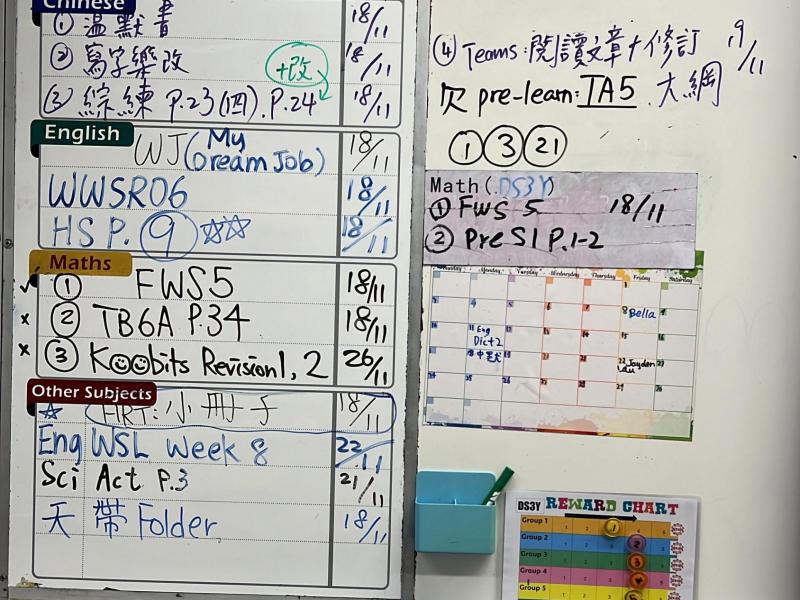 Chinese
① 溫默書 18/11
② 寫字樂改 18/11
+改
③ 綜練 P.23(四).P.24 18/11
English
WJ (My Dream Job) 18/11
WWSR06 18/11
HS P. 9 ☆☆ 18/11
Maths
✓ ① FWS5 18/11
x ② TB6A P.34 18/11
x ③ Koobits Revision 1, 2 26/11
Other Subjects
☆ 小冊子 18/11
Eng WSL Week 8 22/11
Sci Act P.3 21/11
天 帶 Folder 18/11
④ Teams: 閱讀文章+修訂 19/11
欠 pre-learn: TA5 . 大網
① ③ ㉑
Math (DS3Y)
① FWS 5 18/11
② Pre S1 P.1-2
Monday Tuesday Wednesday Thursday Friday Saturday
8 Bella
11 Eng Dict 2
18
22 Jayden Lau
DS3Y REWARD CHART
Group 1
Group 2
Group 3
Group 4
Group 5